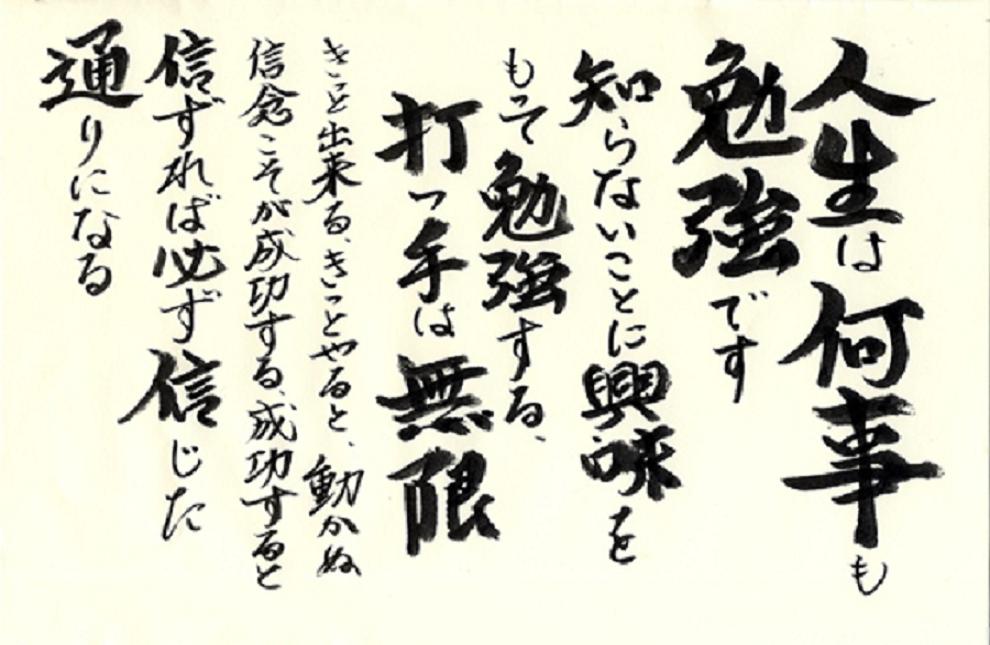 人生は何事も
勉強です
知らないことに興味を
もって勉強する、
打つ手は無限
きっと出来る、きっとやると、動かぬ
信念こそが成功する、成功すると
信ずれば必ず信じた
通りになる